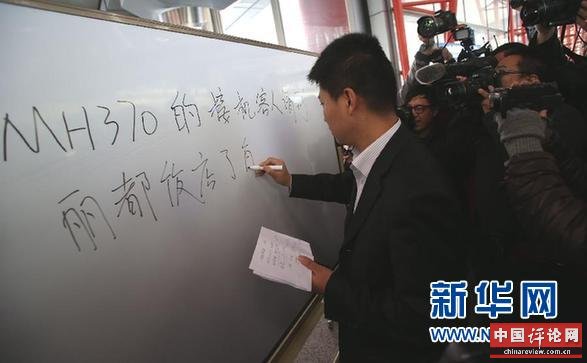 MH370的接机客人请到
丽都饭店了解
新华网
WWW.N
中国评论网
chinareview.com